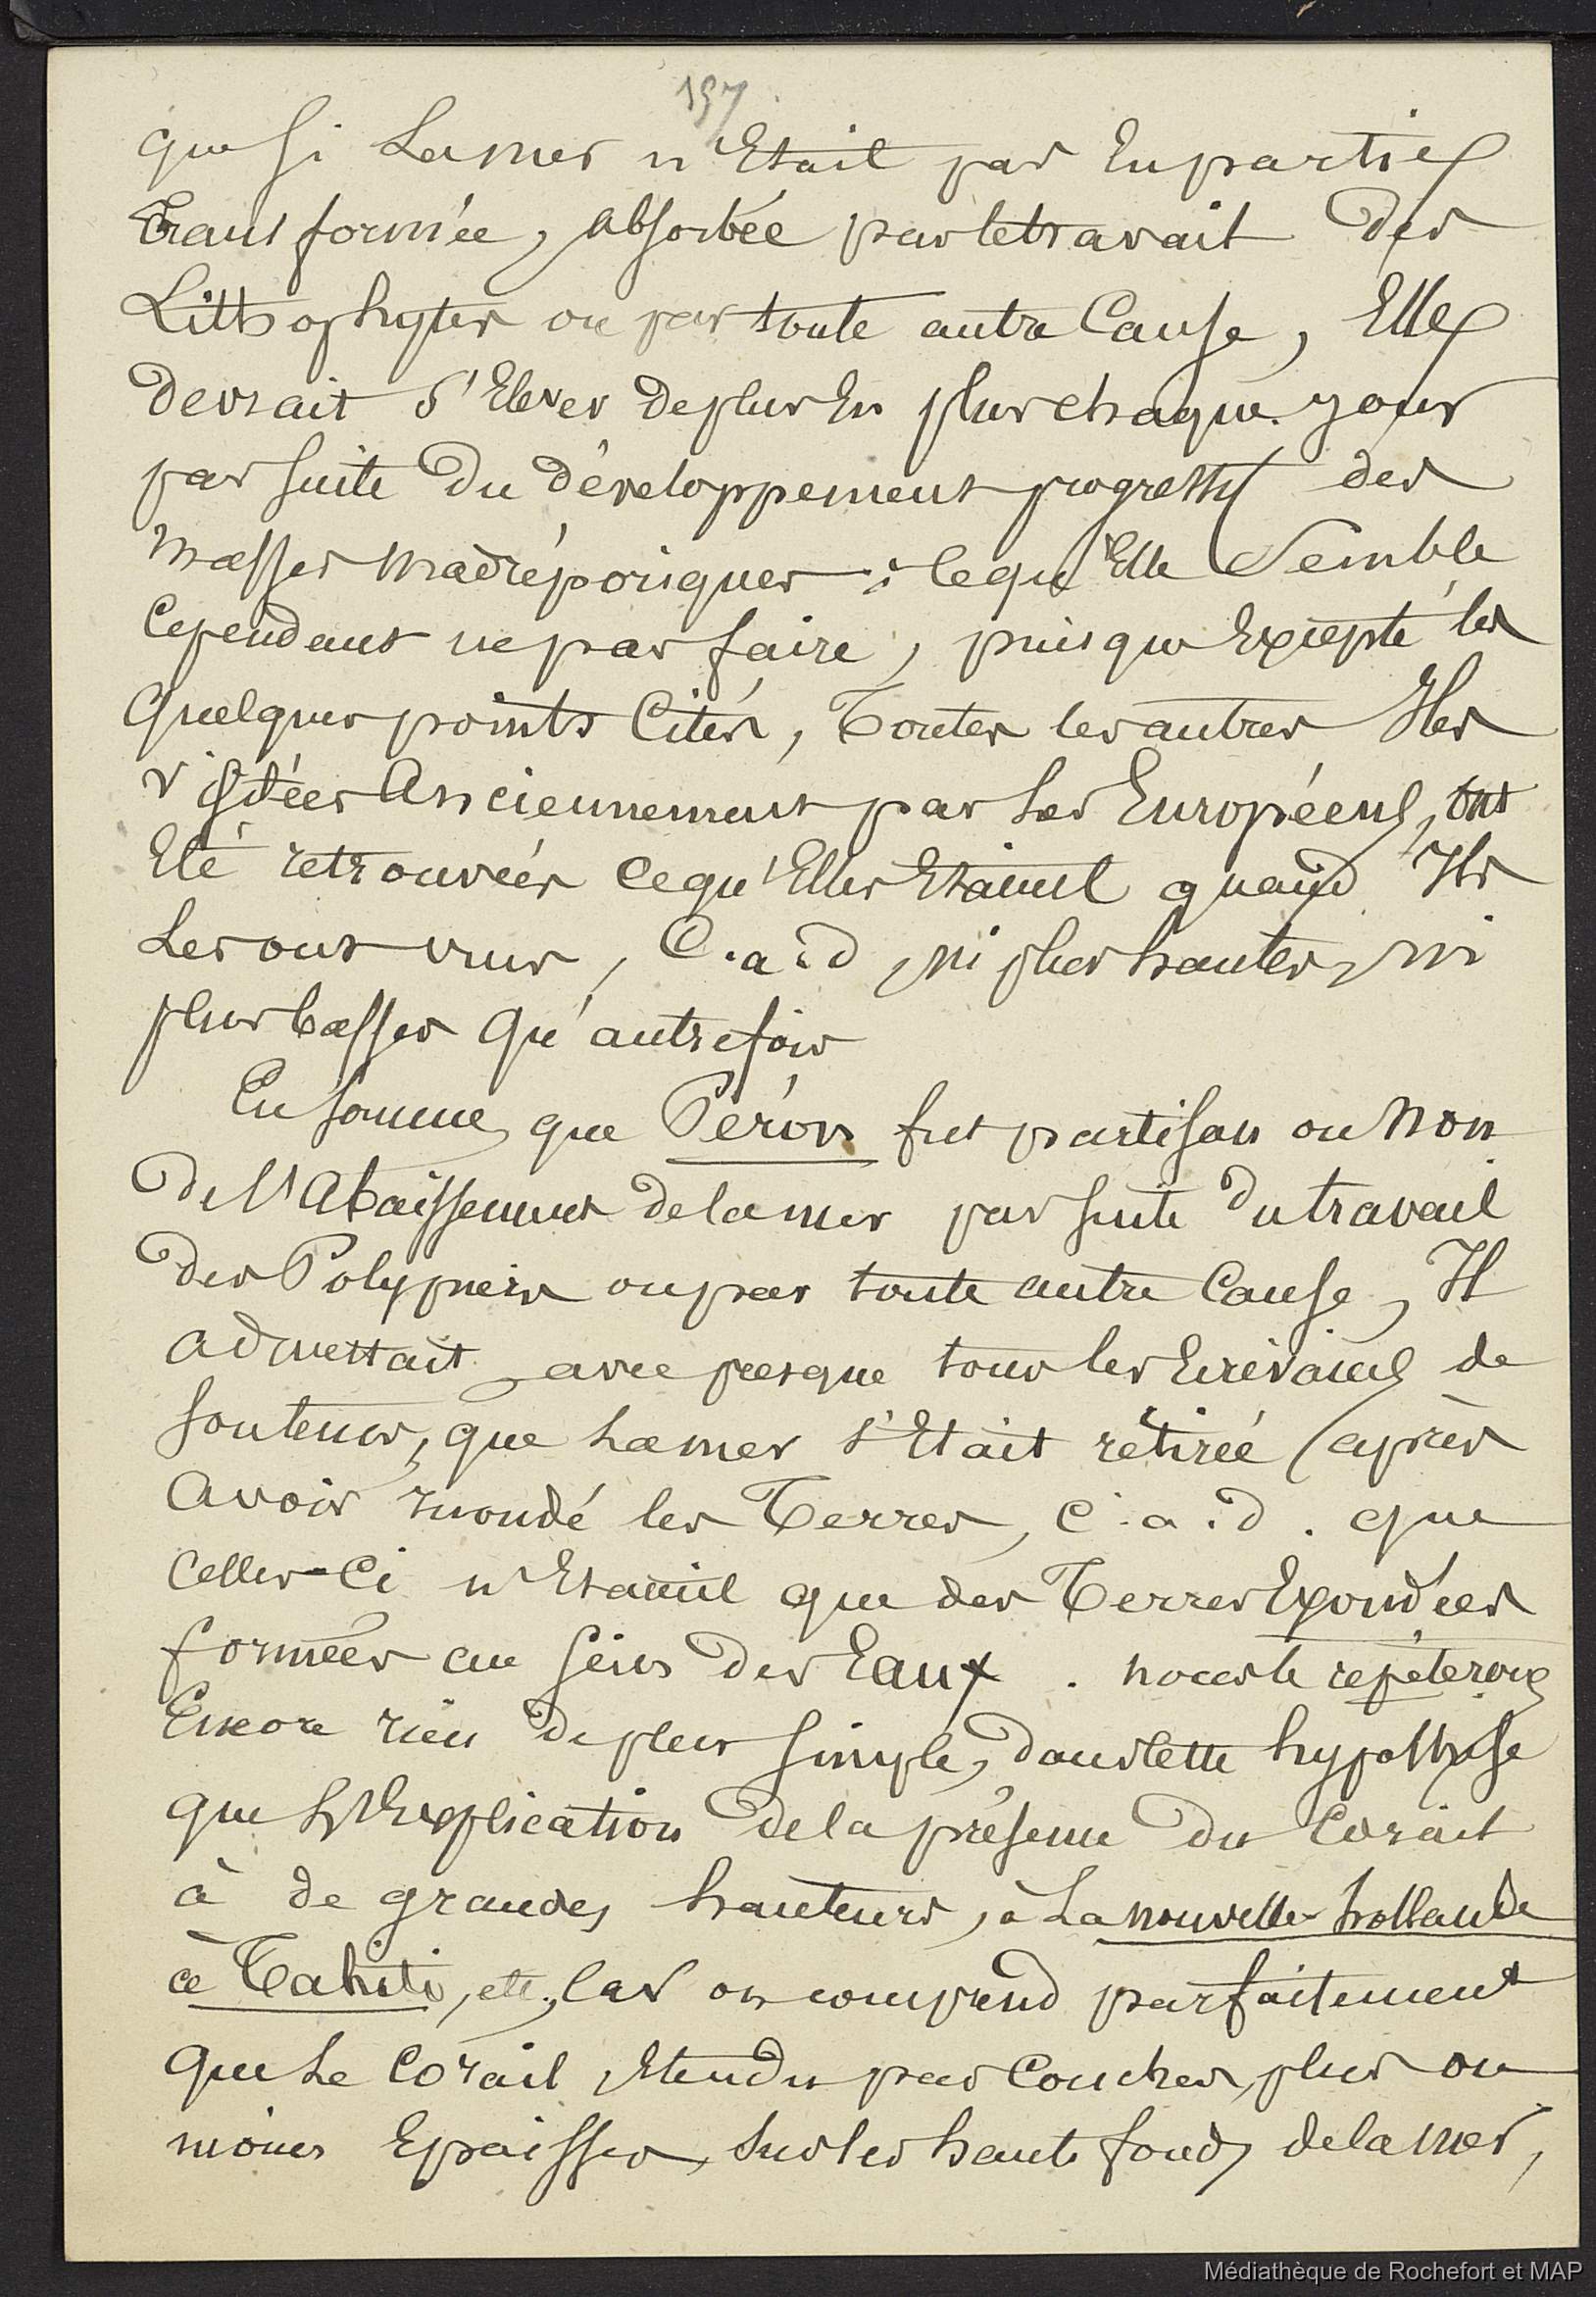 197
que si La mer n'Etait pas En partie
Transformée, absorbée par le travail des
Lithophytes ou par toute autre Cause, Elle
devrait s'Elever de plus En plus chaque jour
par suite du développement progressif des
masses madréporiques ; ce qu'Elle Semble
Cependant ne pas faire, puisque Excepté les
quelques points Cités, Toutes les autres Iles
visitées Anciennement par Les Européens, ont
Eté retrouvées ce qu'Elles Etaient quand Ils
Les ont vues, C.a.d, ni plus hautes, ni
plus basses qu'autrefois
En somme, que Péron fut partisan ou Non
de l'Abaissement de la mer par suite du travail
des Polypiers ou par toute autre Cause, Il
admettait avec presque tous les Ecrivains de
soutenir, que La mer s'Etait retirée après
avoir inondé les Terres, c.a.d. que
celles-Ci n'Etaient que des Terres Exondées
formées au sein des Eaux. nous le répéterons
Encore rien de plus simple, dans cette hypothèse
que L'Explication de la présence du Corail
à de grandes hauteurs, à La nouvelle hollande
à Tahiti, etc., Car on comprend parfaitement
que Le Corail, Etendu par Couches, plus ou
moins Epaisses, sur les hauts fonds de la mer,
Médiathèque de Rochefort et MAP